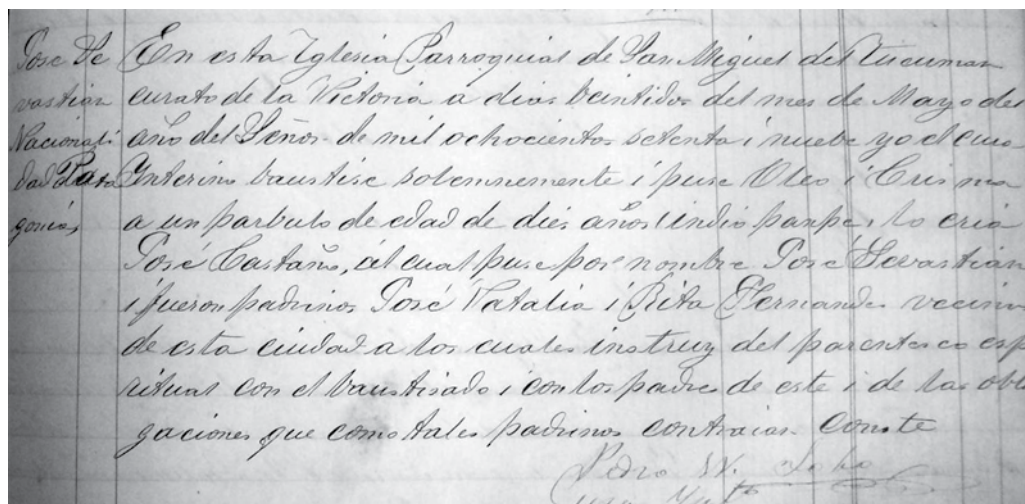 José Se
vastian
Nacionali
dad Pata
gonia,
En esta Yglesia Parroquial de San Miguel del Tucuman
curato de la Victoria á dias beintidos del mes de Mayo del
año del Señor de mil ochocientos setenta i nuebe yo el cura
Ynterino baustise solemnemente i puse Oleo i Crisma
a un parbulo de edad de dies años indio panpa, lo cria
José Castaño, al cual puse por nombre José Sevastián
i fueron padrinos José Natalia i Rita Fernandes vecinos
de esta ciudad a los cuales instruy del parentesco esp
ritual con el baustisado i con los padres de este i de las obli
gaciones que como tales padrinos contraian Conste
Pedro N. Lobo
cura Ynto